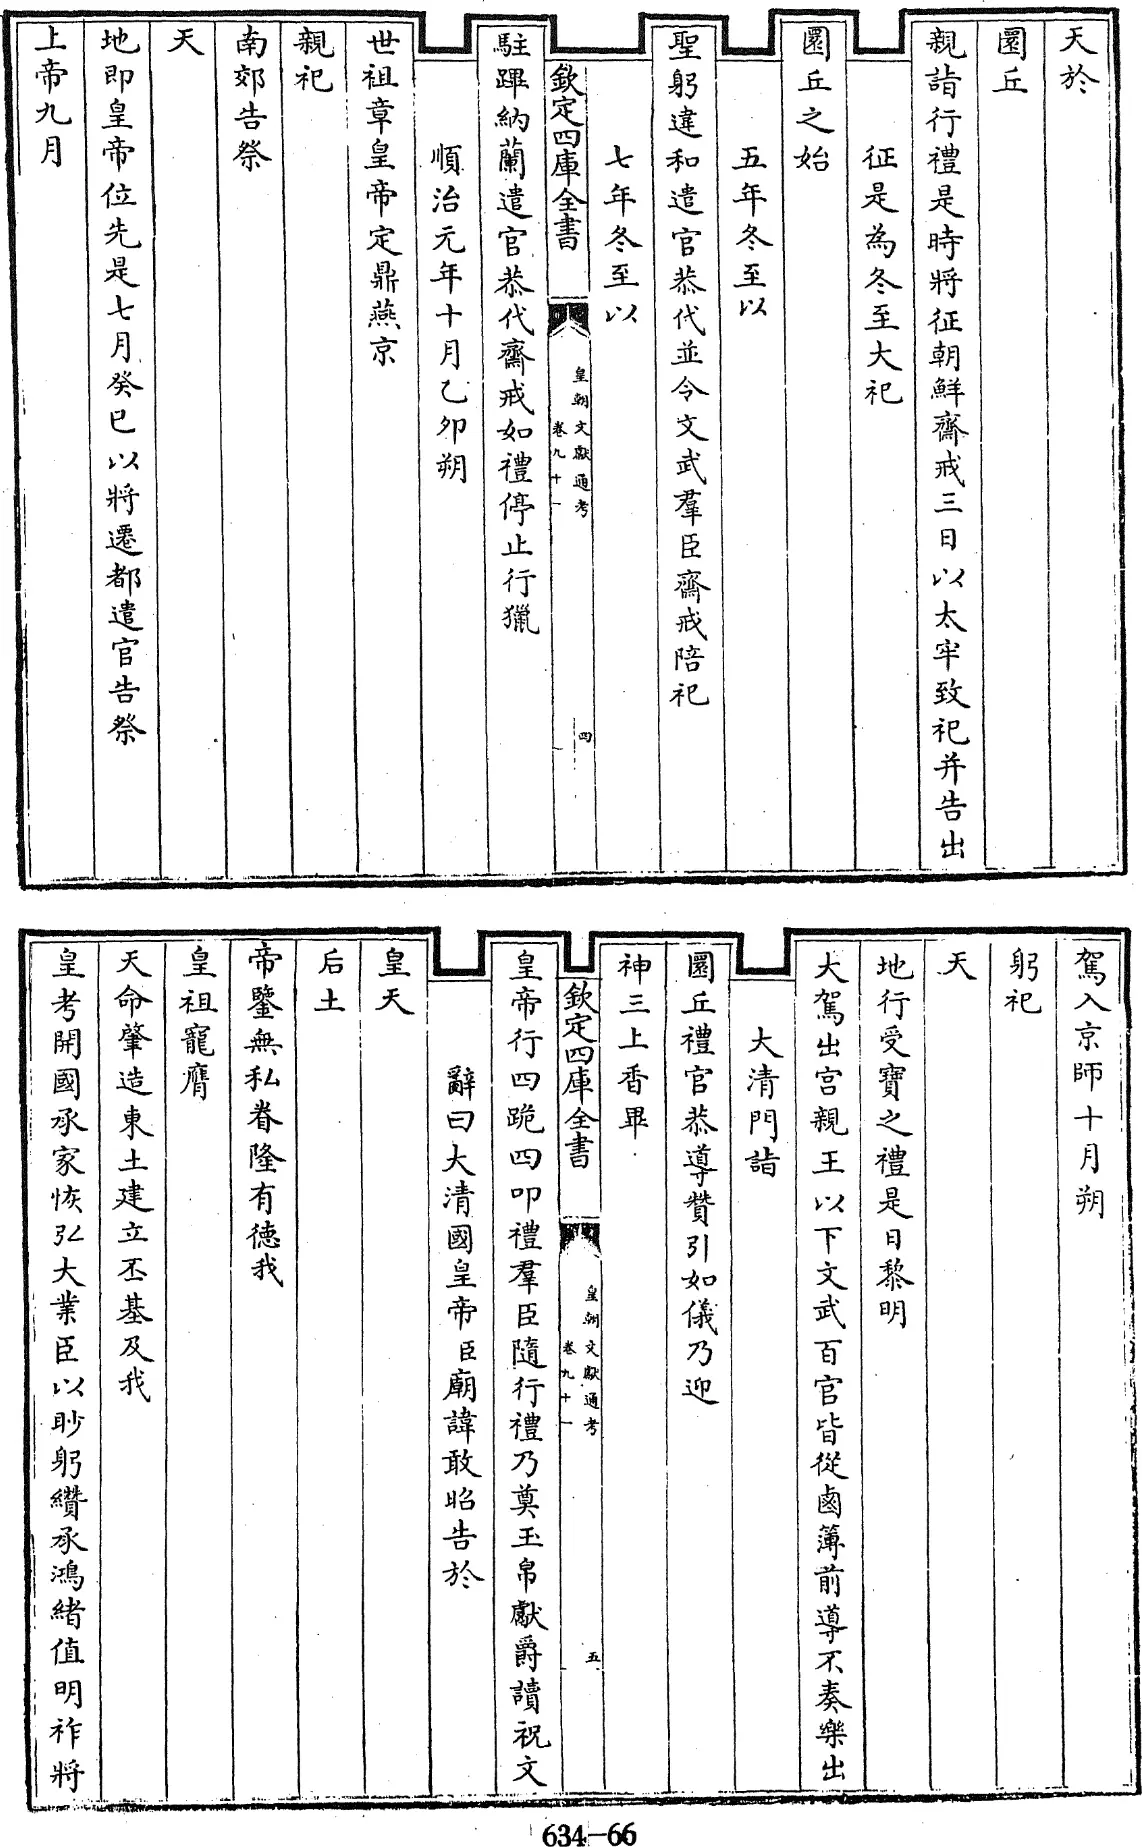 天於
圜丘
親詣行禮是時將征朝鮮齋戒三日以太牢致祀并告出
征是為冬至大祀
圜丘之始
五年冬至以
聖躬違和遣官恭代並令文武羣臣齋戒陪祀
七年冬至以
欽定四庫全書
皇朝文獻通考
卷九十一
四
駐蹕納蘭遣官恭代齋戒如禮停止行獵
順治元年十月乙卯朔
世祖章皇帝定鼎燕京
親祀
南郊告祭
天
地即皇帝位先是七月癸巳以將遷都遣官告祭
上帝九月
駕入京師十月朔
躬祀
天
地行受寶之禮是日黎明
大駕出宫親王以下文武百官皆從鹵簿前導不奏樂出
大清門詣
圜丘禮官恭導贊引如儀乃迎
神三上香畢
欽定四庫全書
皇朝文獻通考
卷九十一
五
皇帝行四跪四叩禮羣臣隨行禮乃奠玉帛獻爵讀祝文
辭曰大清國皇帝臣廟諱敢昭告於
皇天
后土
帝鑒無私眷隆有德我
皇祖寵膺
天命肇造東土建立丕基及我
皇考開國承家恢弘大業臣以眇躬纘承鴻緒值明祚將
634-66